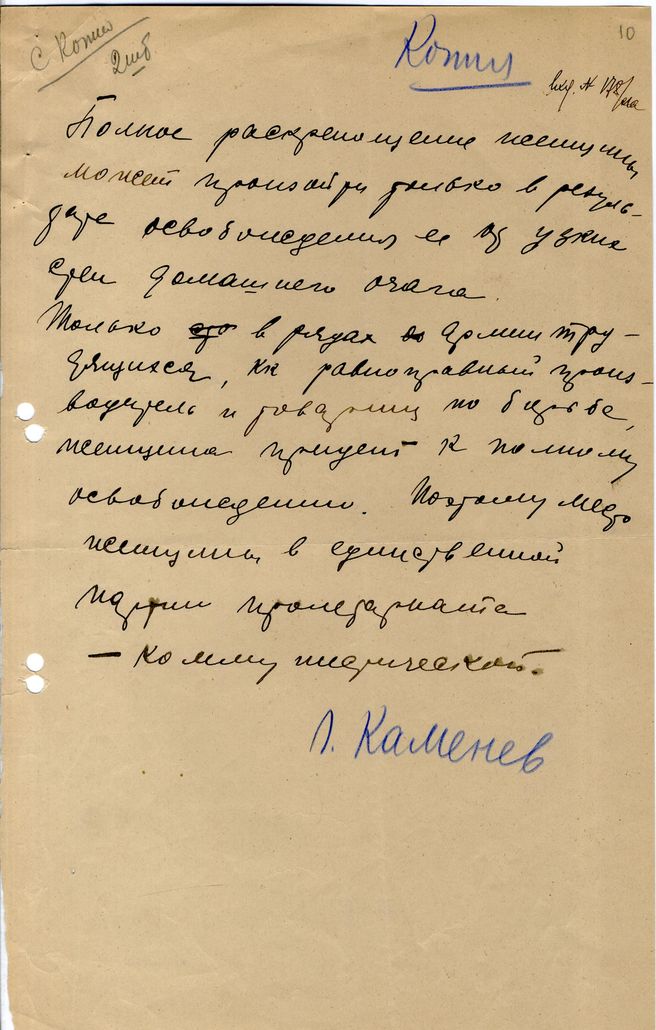 С Копия
2 шб
Копия
10
вход. № 178/
Полное раскрепощение женщины
может произойти только в резуль-
тате освобождения ее из узких
стен домашнего очага.
Только это в рядах во армии тру-
дящихся, кк равноправный произ-
водитель и товарищ по борьбе,
женщина придет к полному
освобождению. Поэтому место
женщины в единственной
партии пролетариата
— Коммунистической.
Л. Каменев